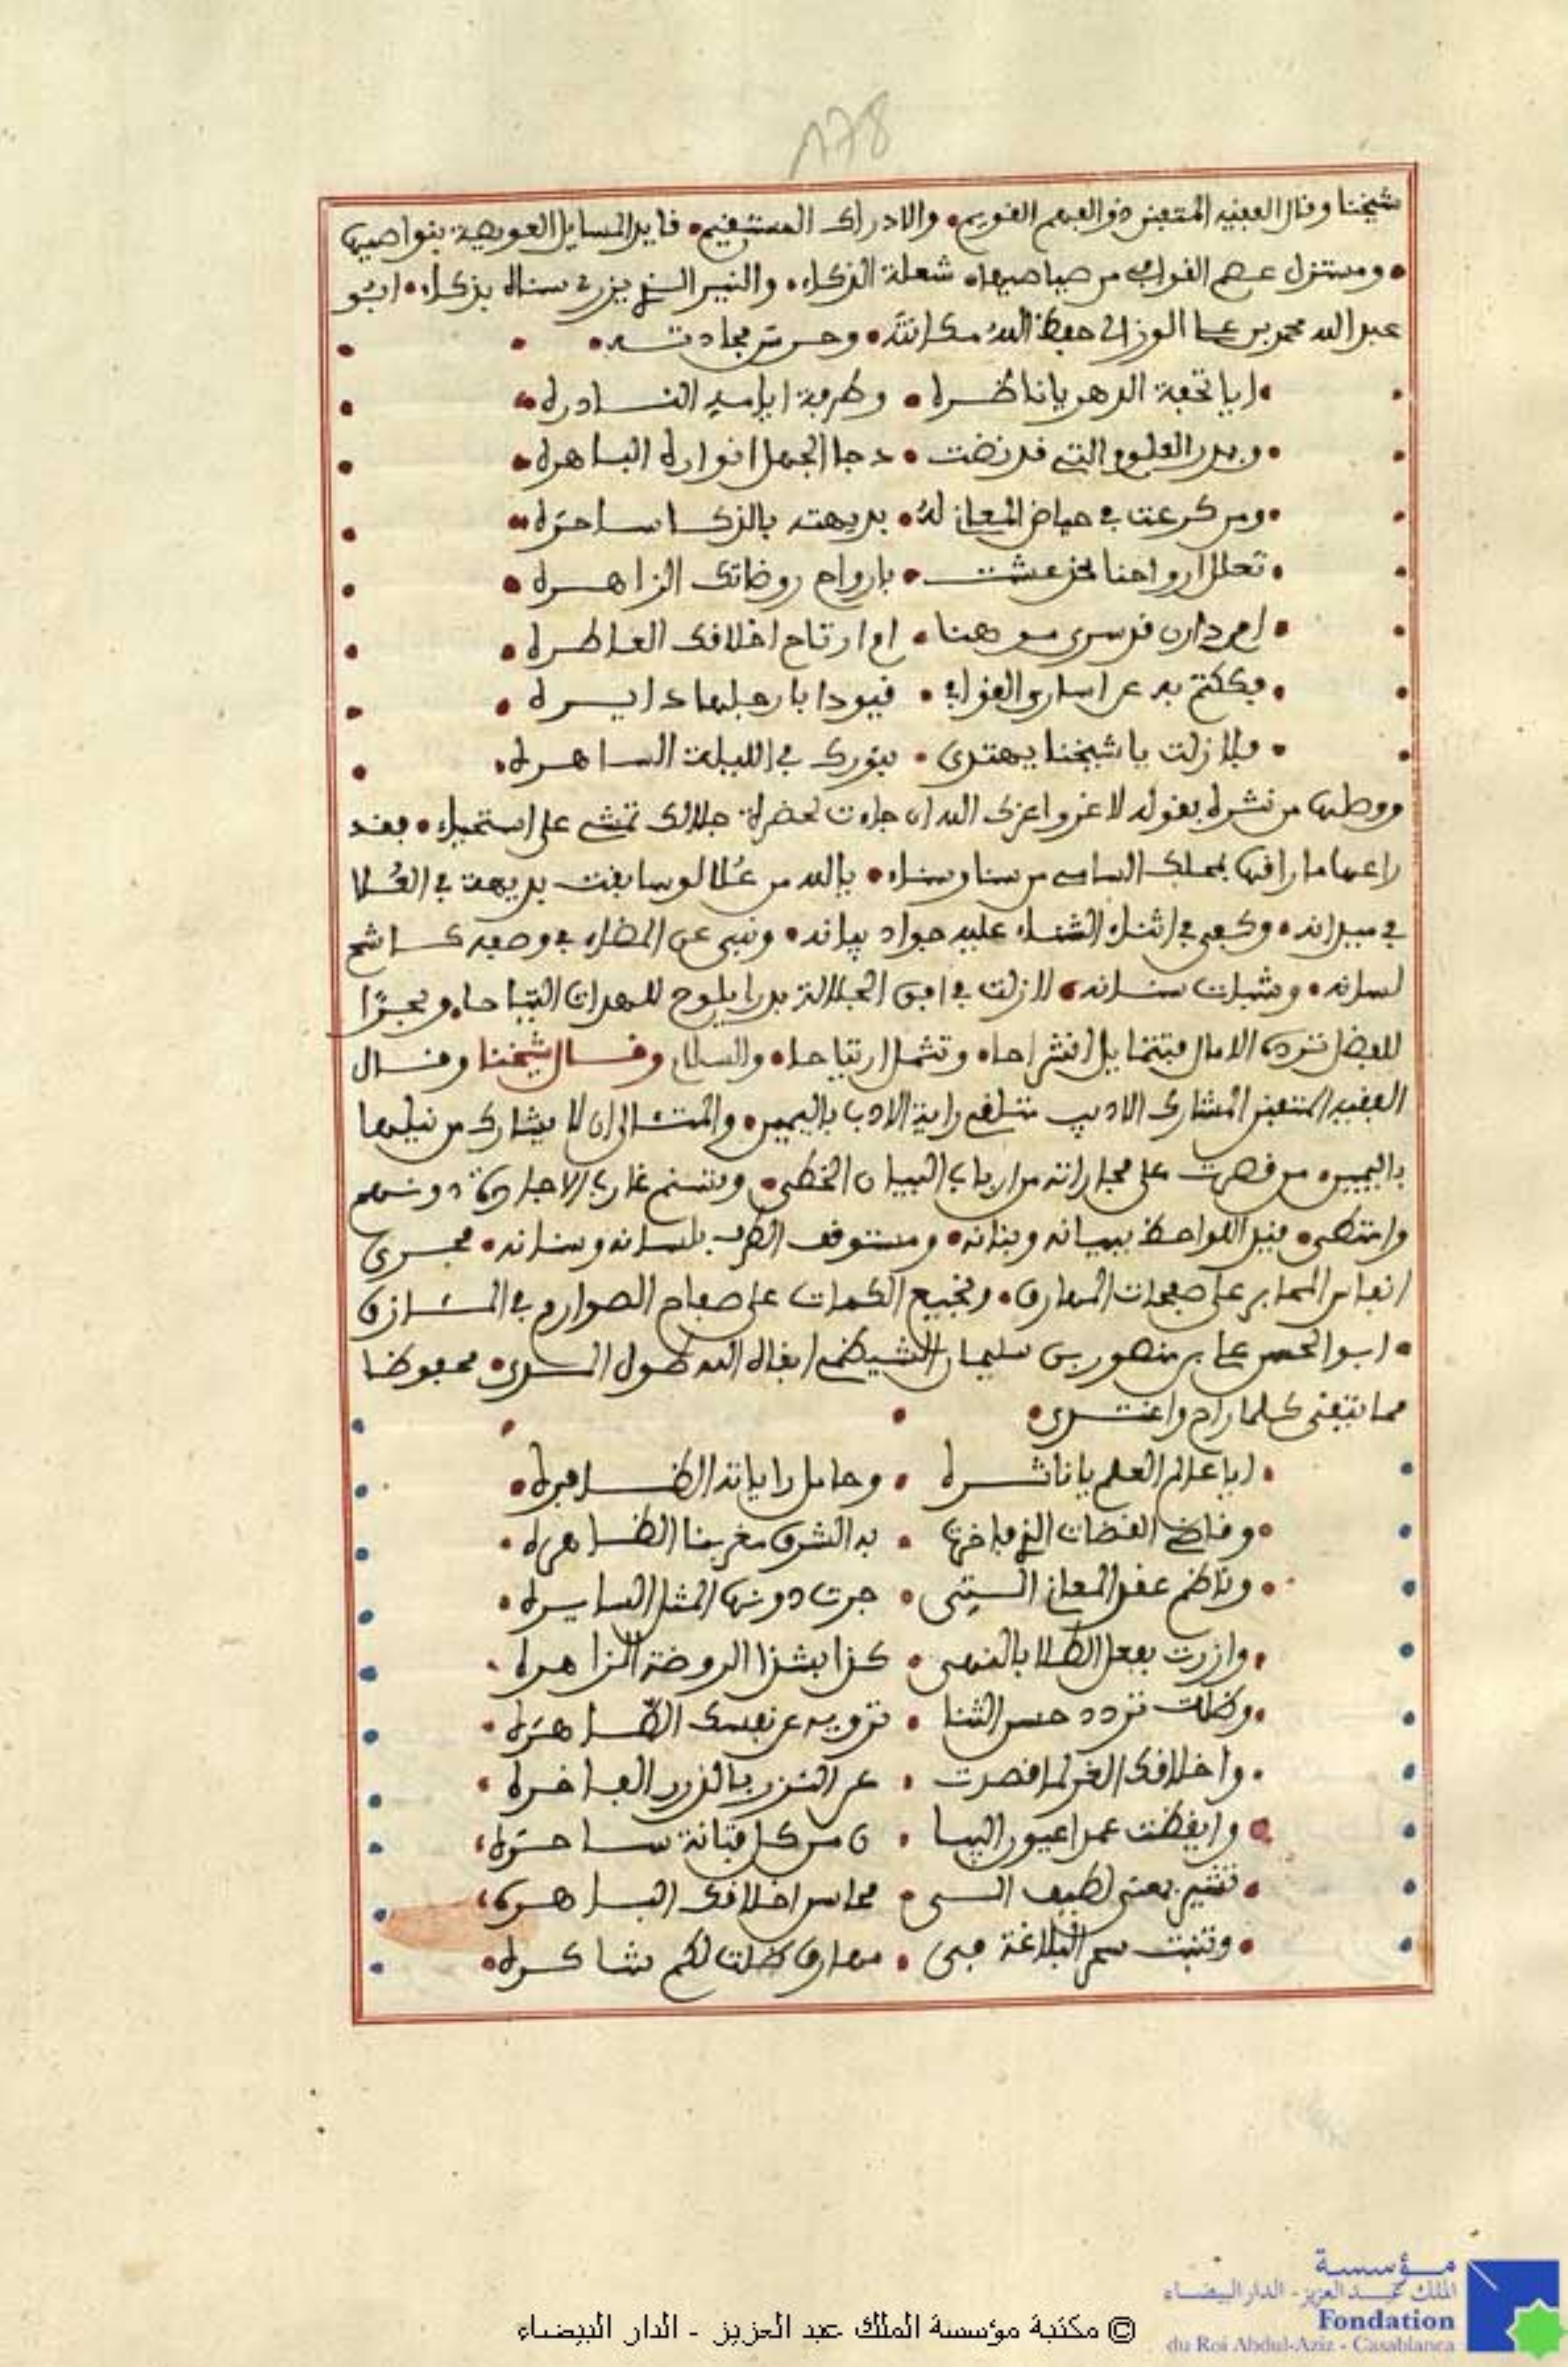 178
شيخنا وقال الفقيه المتفنن ذو الفهم القويم • والادراك المستقيم • قايد المسايل العويصة بنواصيها
• ومستنزل عصم القوافي من صياصيها • شعلة الذكاء • والنير الذي يزري سناه بذكاء • ابو
عبد الله محمد بن علي الوزاني حفظ الله مكانته • وحرس مجادته •
• ايا تحفة الدهر يا ناظره • وطرفة ايامه النادره •
• وبدر العلوم التي قد نضت • دجا الجهل انواره الباهره •
• ومن كرعت في حياض المعاني له • بديهته بالذكا ساحره •
• تعلل ارواحنا اذ عشت • بارواح روضاتك الزاهره •
• ام دارين قد سرى موهنا • ام ارتاح اخلاقك العاطره •
• يكتم به عن اسارى القوافي • قيودا بارجلها دايره •
• فلا زلت يا شيخنا يهتدى • بنورك في الليلة الساهره •
ووطأها من نثره بقوله لا غرو اعزك الله ان جاءت لحضرة جلالك تمشي على استحياء • فقد
راعها ما راقها بمحلك السامي من سنا وسناء • يالله من علا لو سابقت بديهة في العلا
في ميدانه • وكبى في اثناء الثناء عليه جواد بيانه • ونبى عن المضاء في وصفه كاشح
لسانه • وشبات سنانه • لا زلت في افق الجلالة بدرا يلوح للهداة التياحا • وبحرًا
للفضل ترده الامال فتتمايل انشراحا • وتثمل ارتياحا • والسلام وقال شيخنا وقال
الفقيه المتفنن المشارك الاديب متلقي راية الادب باليمين • والمتالي ان لا يشارك من نيلها
باليمين • من قصرت على مجاراته من ارباب البيان الخطى • وتسنم غارب الاجادة دونهم
وامتطى • قيد اللواحظ ببيانه وبنانه • ومستوقف الطرف بلسانه وسنانه • مجرى
انفاس المحابر على صفحات المهارق • ونجيع الكمات على صفاح الصوارم في المازق
• ابو الحسن علي بن منصور بن سليمان الشياظمي ابقاه الله طول المدى • محفوظا
مما يتقى كلما رام واغتدى •
• ايا عالم العلم يا ناشره • وحامل راياته الظافره •
• وقاضي القضات الذي فاخرت • به الشرق مغربنا الظاهره •
• وناظم عقد المعاني التي • جرت دونها المثل السايره •
• وازرت بفعل الطلا بالنهى • كذا بشذا الروضة الزاهره •
• وظلت تردد حسن الثنا • ترويه عن نفسك الطاهره •
• واخلاقك الغر لما قصرت • عن النزر بالدرر الفاخره •
• وايقظت عمدا عيون البيا • ن من كل فتانة ساحره •
• تشير بمعنى لطيف الى • محاسن اخلاقك الباهره •
• وتنبت سمر البلاغة في • مهارق ظلت لكم شاكره •
© مكتبة مؤسسة الملك عبد العزيز - الدار البيضاء
مؤسسة
الملك عبد العزيز - الدار البيضاء
Fondation
du Roi Abdul-Aziz - Casablanca